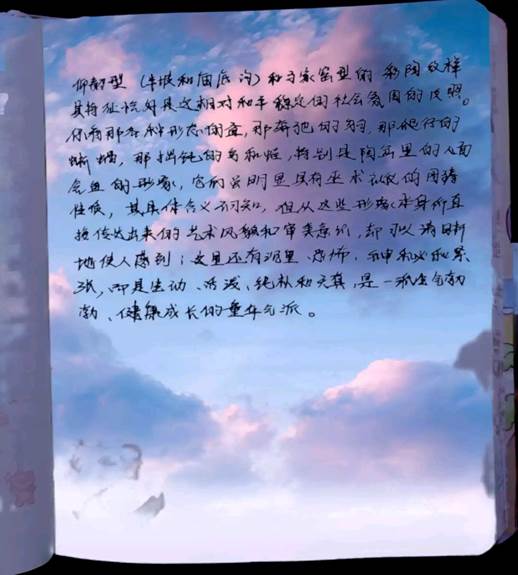 仰韶型（半坡和庙底沟）和马家窑型的彩陶纹样
其特征恰好是这相对和平稳定的社会氛围的反照。
你看那各种形态的鱼，那奔驰的狗，那爬行的
蜥蜴，那拙钝的鸟和蛙，特别是陶盆里的人面
含鱼的形象，它们尽明显具有巫术礼仪的图腾
性质，其具体含义不可知，但从这些形象本身所直
接传达出来的艺术风貌和审美意识，却可以清晰
地使人感到：这里还有沉重、恐怖、神秘和紧
张，而是生动、活泼、纯朴和天真，是一派生气勃
勃、健康成长的童年气派。